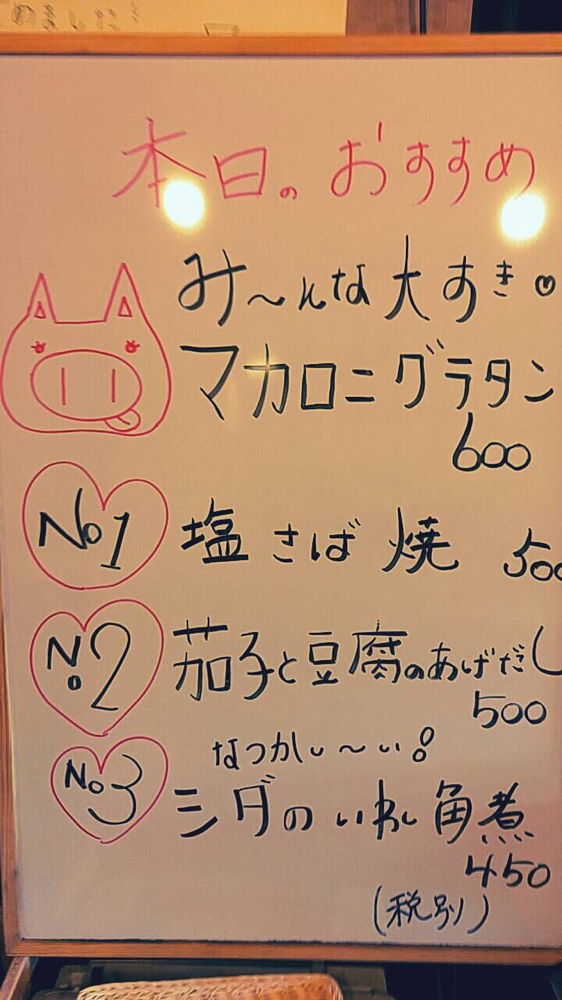 めました!
本日のおすすめ
み〜んな大すき♡
マカロニグラタン
600
No1 塩さば焼 500
No2 茄子と豆腐のあげだし
500
なつかし〜い!
No3 シダのいわし角煮
450
(税別)